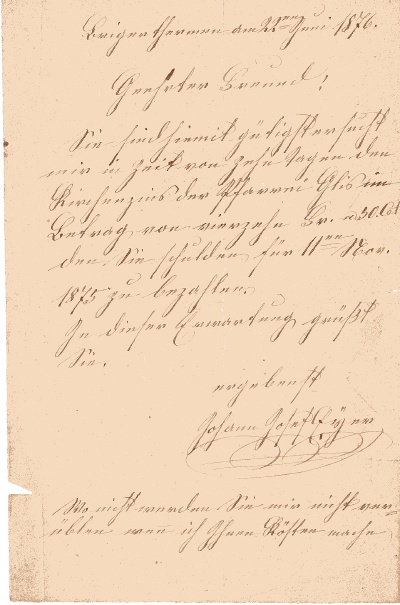 Brigerthermen am 22ten Juni 1876.
Geehrter Freund!
Sie sind hiemit gütigst ersucht
mir in Zeit von zehn Tagen den
Kirchenzins der Pfarrei Glis im
Betrag von vierzehn Fr. u 30. Cet
den Sie schulden für 11ten Nov.
1875 zu bezahlen.
In dieser Erwartung grüßt
Sie.
ergebenst
Johann Josef Eyer
Wo nicht werden Sie mir nicht ver=
üblen wen̄ ich Ihnen Kösten mache